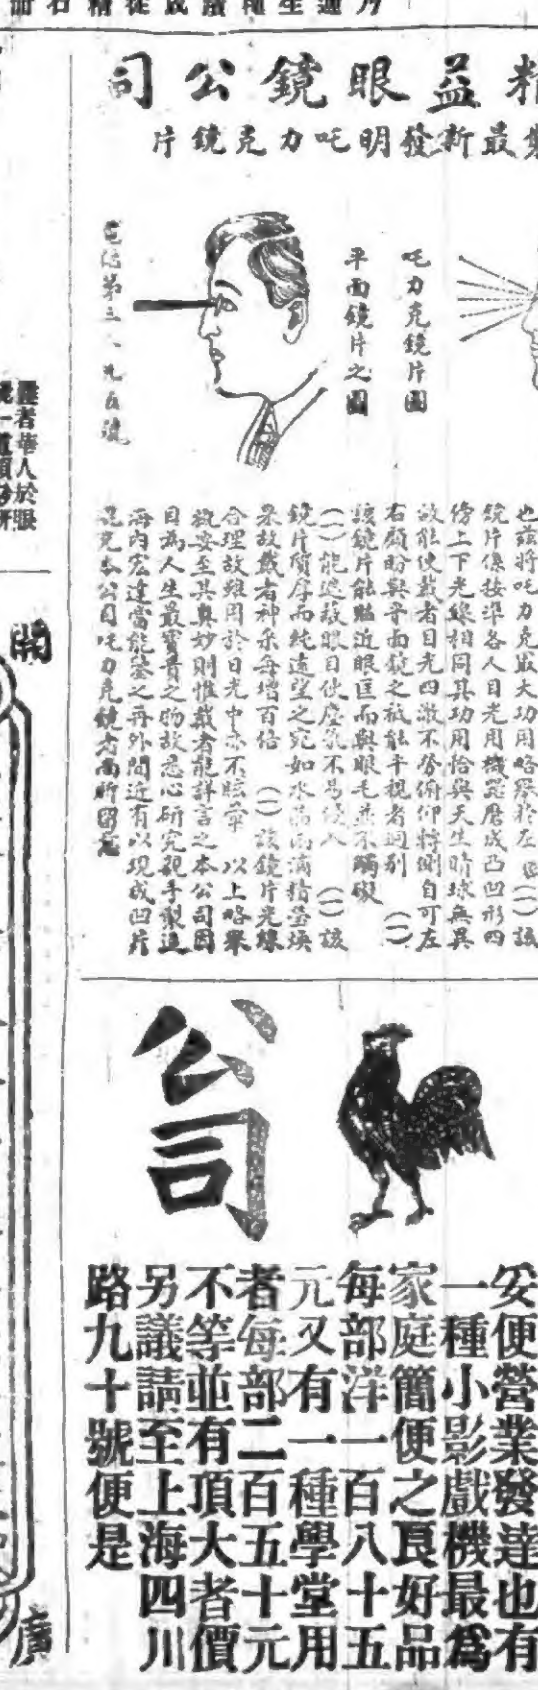 精益眼鏡公司
最新發明吒力克鏡片
吒力克鏡片圖
平面鏡片之圖
也茲將吒力克最大功用略舉於左 (一)該
鏡片係按準各人目光用機器磨成凸凹形四
傍上下光線相同其功用恰與天生睛球無異
故能使戴者目光四澈不勞俯仰轉側自可左
右顧盼與平面鏡之祗能平視者迥別 (一)
該鏡片能貼近眼匡而與眼毛並不觸礙
(一)能遮護眼目使塵氣不易侵入 (一)該
鏡片質厚而純遠望之宛如水晶而滿精瑩
故戴者神采每增百倍 (一)該鏡片光線
合理故雖用於日光中亦不眩暈 以上略舉
至其奧妙則惟戴者能詳言之本公司因
目為人生最寶貴之物故悉心研究親手製造
海內宏達當能鑒之再外間近有以現成凹片
混充本公司吒力克鏡者尚祈留意
公司
妥便營業發達也有
一種小影戲機最為
家庭簡便之良好品
每部洋一百八十五
元又有一種學堂用
者每部二百五十元
不等並有項大者價
另議請至上海四川
路九十號便是
者華人於眼
開
廣